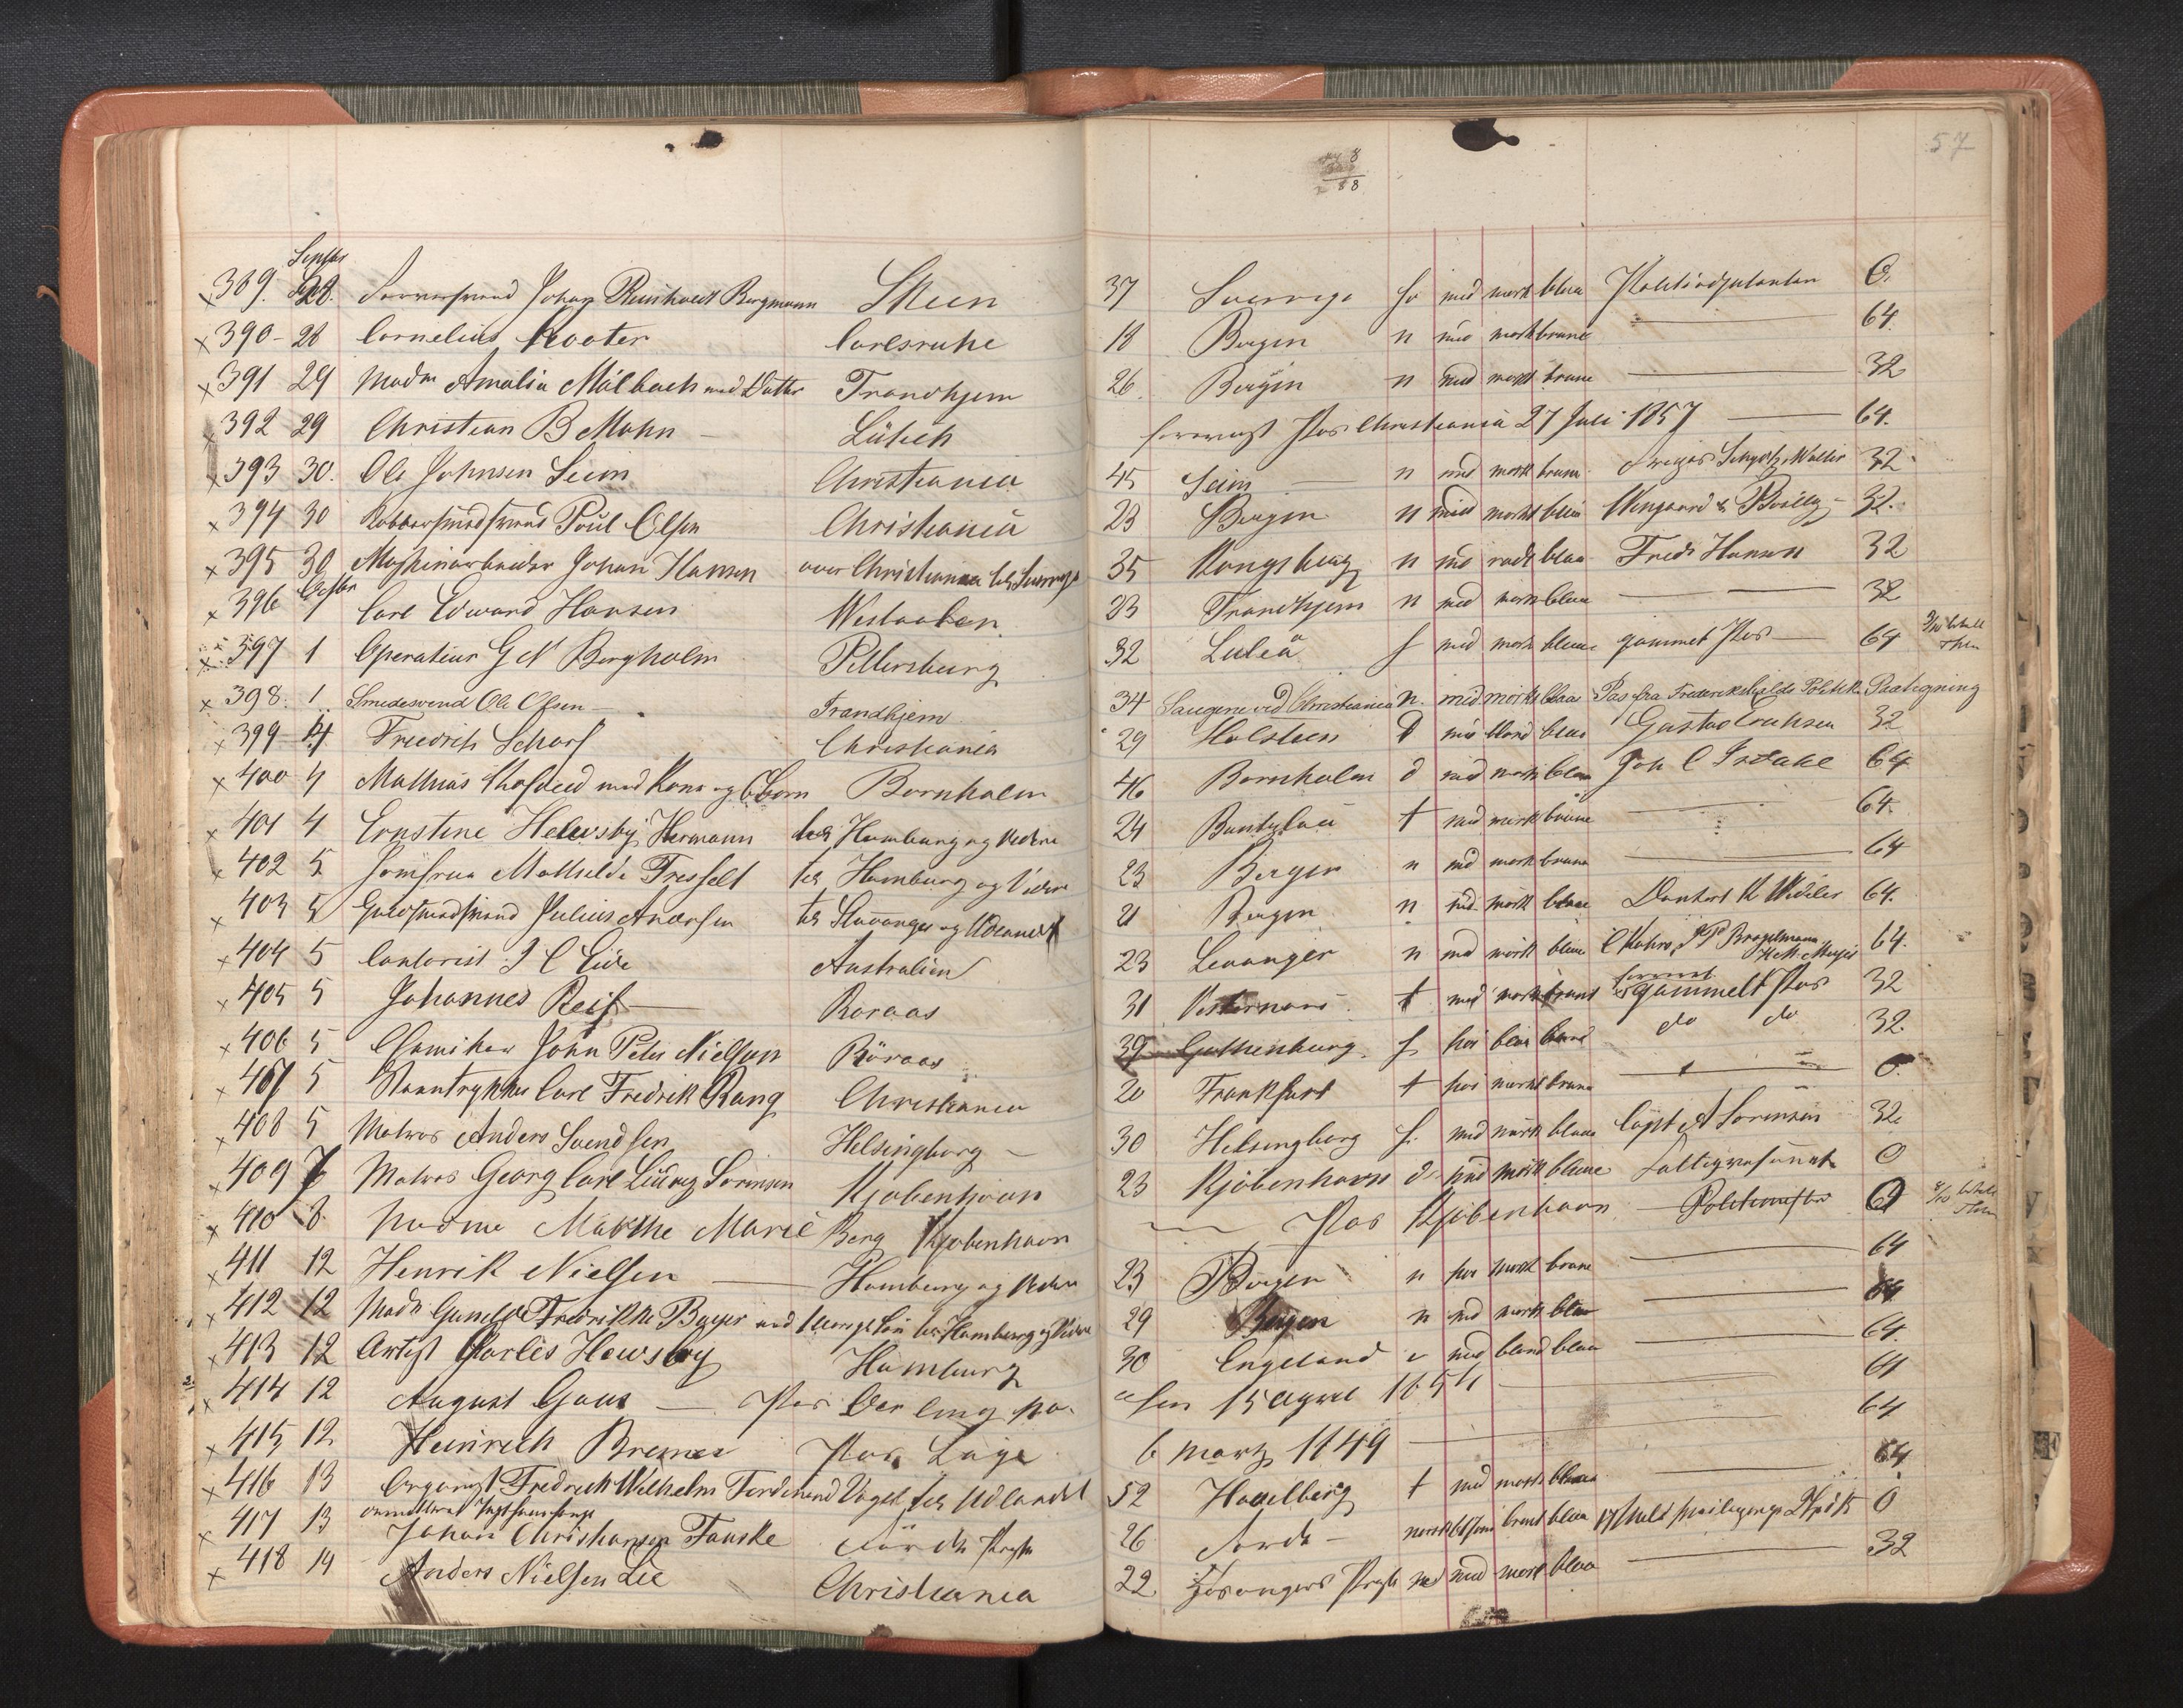 57
8
88
Septbr
389. 28. Farversvend Johan Reinholdt Bergmann Skeen 37 Sverrige sv mid mørk blaa Politiadjutanten 0.
390 - 28 Cornelius Carlsruhe 18 Bergen n mid mørk brune — 64.
391 29 Madm Amalia Målbach med Datter Trondhjem 26. Bergen n mid mørk brune — 32
392 29 Christian B Mohn — Lübeck forevist Pas Christiania 27 Juli 1857 — 64.
393 30. Ole Johnsen Seim Christiania 45 Seim n mid mørk brune 32
394 30 Kobbersmedsvend Poul Olsen Christiania 23 Bergen n mid mørkt blaa Wingaard & 32.
395 30 Maskinarbeider Johan Hansen over Christiania til Sverrige 35 Kongsberg n mid rødt blaa Fredr Hansen 32
Octbr
396 1 Carl Edward Hansen 23 Trondhjem n mid mørk blaa — 32
397 1 Operateur G N Bergholm Pettersburg 32 Luleå s mid mørk blaa gammel Pas — 64
398. 1 Smedesvend Ole Olsen — Trondhjem 34 Saugene ved Christiania n. mid mørk blaa Pas fra Frederikshalds Politik. Paategning
399 - 4 Friedrich Scharf Christiania 29 Holsteen D mid blond blaa Gustav Erichsen 32
400 4 Mathias med Kone og 6 Børn Bornholm 46 Bornholm d mid mørk blaa Joh C Isdahl 64
401 4 Ernstine Helevsby Hermann til Hamburg og videre 24 Buntzlau t mid mørk brune — 64.
402 5 Jomfrue Mathilde Tresselt til Hamburg og videre 23 Bergen n mid mørk brune — 64
403 5 Guldsmedsvend Julius Andersen til Stavanger og Udlandet 21 Bergen n mid mørk blaa Dankert K Wideler 64.
404 5 Contorist J C Lie Australien 23 Levanger n mid mørk blaa C Mohr, J P Brøgelmann H M Meyer 64.
405 5 Johannes Reif — Roraas 31 t mid mørk brunt forevist gammelt Pas 32
406 5 Chemiker John Peter Nielsen Röraas 39 Gothenburg. s høi blaa blond do do 32.
407 5 Steentrykker Carl Fredrik Rang Christiania 20 Frankfurt t høi mørkt brune — 0
408 5 Matros Anders Svendsen Helsingborg — 30 Helsingborg s. mid mørk blaa Capt A Sørensen 32
409 7 Matros Georg Carl Ludvig Sørensen Kjøbenhavn 23 Kjøbenhavn d mid mørk blaae Fattigvæsenet 0
410 8 Madme Marthe Marie Berg Kjøbenhavn — Pas Kjøbenhavn — Politimester 0
411 12 Henrik Nielsen — Hamburg og videre 23 Bergen n høi mørk brune — 64
412 12 Madm Gunelde Fredrikke Beyer med Søn til Hamburg og videre 29 Bergen n mid mørk blaa — 64
413 12 Artist Charles Hewsby Hamburg 30 Engeland e mid blond blaa — 64.
414 12 August Gaus — Pas Oerlinghausen 15 April 1854 — 64
415 12 Heinrich Bremer Pas Lage 6 Martz 1849 — 64
416 13 Organist Fredrich Wilhelm Ferdinand Vogel til Udlandet 52 Havelberg t mid mørk blaa — 64
417 13 Tugthuusfange
Johan Christiansen Fauske Førde Præstg 26 Førde — norsk brunt blaa 0
418 14 Anders Nielsen Lie Christiania 22. Præstg n mid mørk blaa — 32